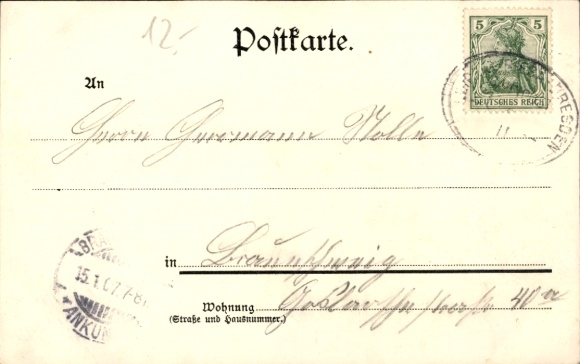 12.-
Postkarte.
5 5
DEUTSCHES REICH
DRESDEN
11
An
Herrn Hermann Nolle
in Braunschweig
15.1.07.7-8
ANKUN
Wohnung Goslarsche straße 40a
(Straße und Hausnummer.)